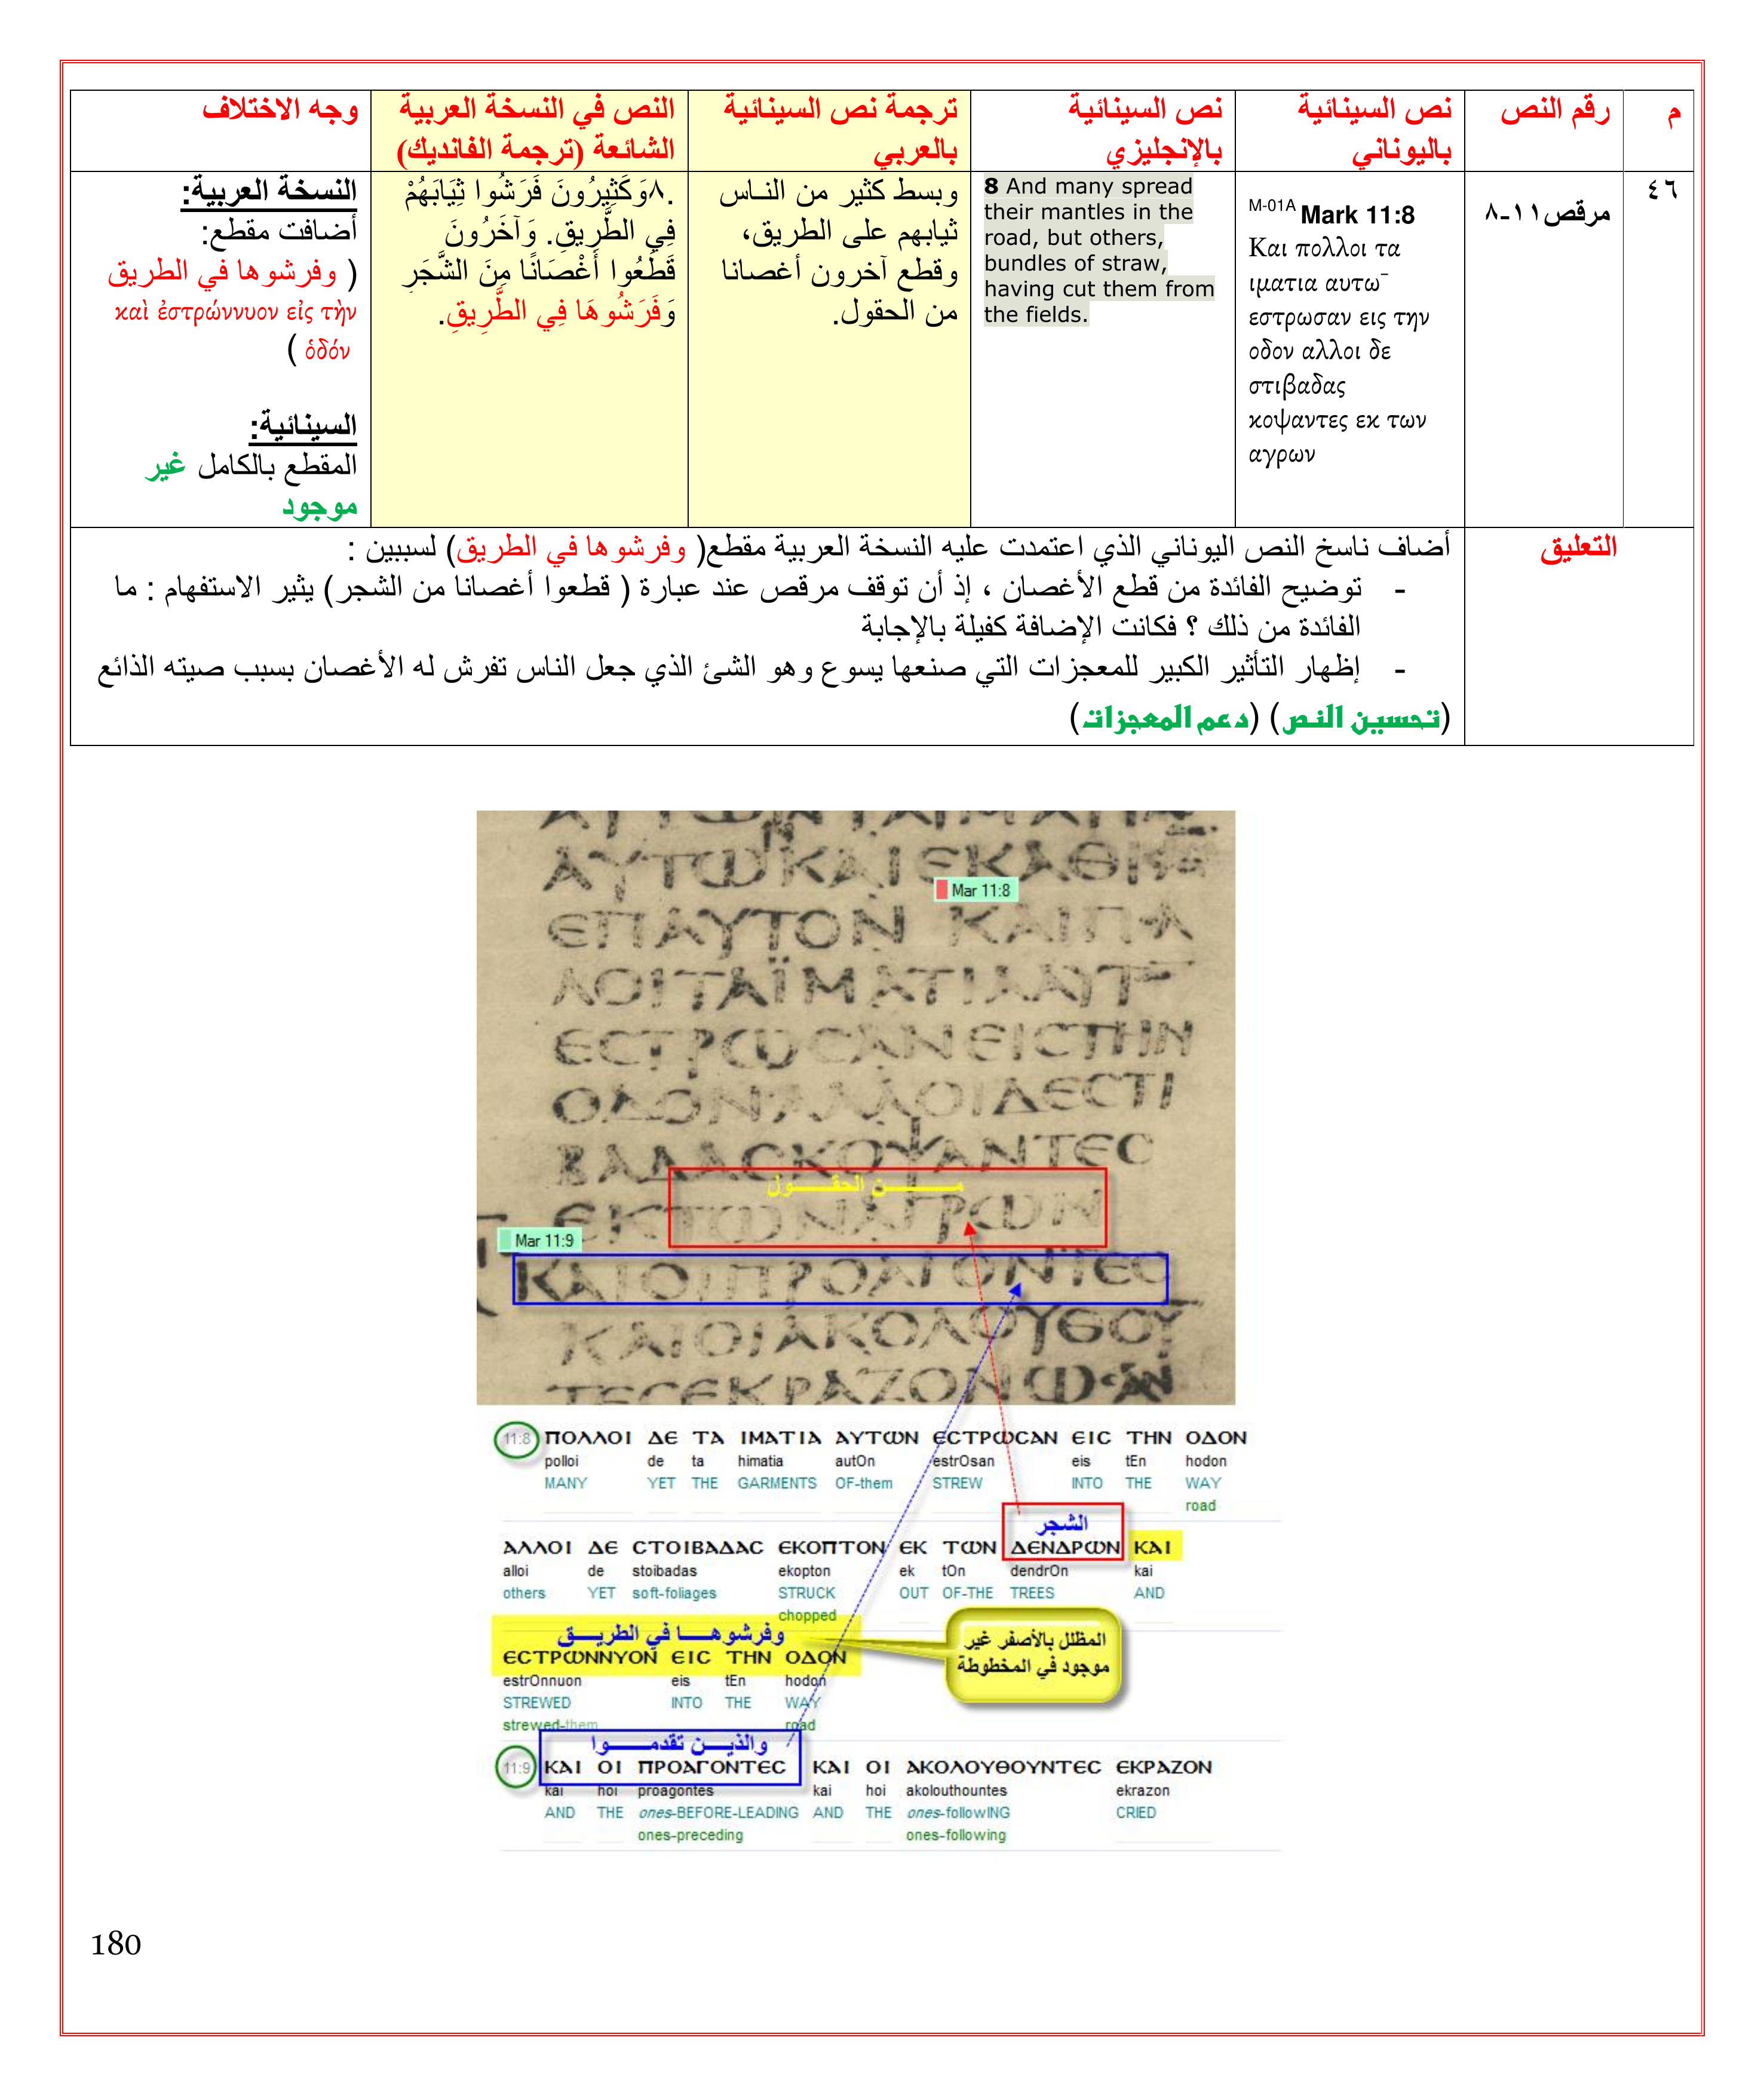 م
رقم النص
نص السينائية
باليوناني
نص السينائية
بالإنجليزي
ترجمة نص السينائية
بالعربي
النص في النسخة العربية
الشائعة (ترجمة الفانديك)
وجه الاختلاف
٤٦
مرقص١١-٨
M-01A Mark 11:8
Και πολλοι τα
ιματια αυτω¯
εστρωσαν εις την
οδον αλλοι δε
στιβαδας
κοψαντες εκ των
αγρων
8 And many spread
their mantles in the
road, but others,
bundles of straw,
having cut them from
the fields.
وبسط كثير من الناس
ثيابهم على الطريق،
وقطع آخرون أغصانا
من الحقول.
.٨وَكَثِيرُونَ فَرَشُوا ثِيَابَهُمْ
فِي الطَّرِيقِ. وَآخَرُونَ
قَطَعُوا أَغْصَانًا مِنَ الشَّجَرِ
وَفَرَشُوهَا فِي الطَّرِيقِ.
النسخة العربية:
أضافت مقطع:
( وفرشوها في الطريق
καὶ ἐστρώννυον εἰς τὴν
ὁδόν )
السينائية:
المقطع بالكامل غير
موجود
التعليق
أضاف ناسخ النص اليوناني الذي اعتمدت عليه النسخة العربية مقطع( وفرشوها في الطريق) لسببين :
- توضيح الفائدة من قطع الأغصان ، إذ أن توقف مرقص عند عبارة ( قطعوا أغصانا من الشجر) يثير الاستفهام : ما
الفائدة من ذلك ؟ فكانت الإضافة كفيلة بالإجابة
- إظهار التأثير الكبير للمعجزات التي صنعها يسوع وهو الشئ الذي جعل الناس تفرش له الأغصان بسبب صيته الذائع
(تحسين النص) (دعم المعجزات)
ΑΥΤΩΚΑΙΕΚΑΘΙ
Mar 11:8
ΕΠΑΥΤΟΝ ΚΑΙΠ
ΛΟΙΤΑΪΜΑΤΙΑΑΥΤ
ΕϹΤΡΩϹΑΝΕΙϹΤΗΝ
ΟΔΟΝΑΛΛΟΙΔΕϹΤΙ
ΒΑΔΑϹΚΟΨΑΝΤΕϹ
من الحقول
ΕΚΤΩΝΑΓΡΩΝ
Mar 11:9
ΚΑΙΟΙΠΡΟΑΓΟΝΤΕϹ
ΚΑΙΟΙΑΚΟΛΟΥΘΟΥ
ΤΕϹΕΚΡΑΖΟΝ
11:8 ΠΟΛΛΟΙ ΔΕ ΤΑ ΙΜΑΤΙΑ ΑΥΤΩΝ ΕϹΤΡΩϹΑΝ ΕΙϹ ΤΗΝ ΟΔΟΝ
polloi de ta himatia autOn estrOsan eis tEn hodon
MANY YET THE GARMENTS OF-them STREW INTO THE WAY
road
الشجر
ΑΛΛΟΙ ΔΕ ϹΤΟΙΒΑΔΑϹ ΕΚΟΠΤΟΝ ΕΚ ΤΩΝ ΔΕΝΔΡΩΝ ΚΑΙ
alloi de stoibadas ekopton ek tOn dendrOn kai
others YET soft-foliages STRUCK OUT OF-THE TREES AND
chopped
وفرشوهـــا في الطريـــق
المظلل بالأصفر غير
موجود في المخطوطة
ΕϹΤΡΩΝΝΥΟΝ ΕΙϹ ΤΗΝ ΟΔΟΝ
estrOnnuon eis tEn hodon
STREWED INTO THE WAY
strewed-them road
والذيـــن تقدمـــوا
11:9 ΚΑΙ ΟΙ ΠΡΟΑΓΟΝΤΕϹ ΚΑΙ ΟΙ ΑΚΟΛΟΥΘΟΥΝΤΕϹ ΕΚΡΑΖΟΝ
kai hoi proagontes kai hoi akolouthountes ekrazon
AND THE ones-BEFORE-LEADING AND THE ones-followING CRIED
ones-preceding ones-following
180